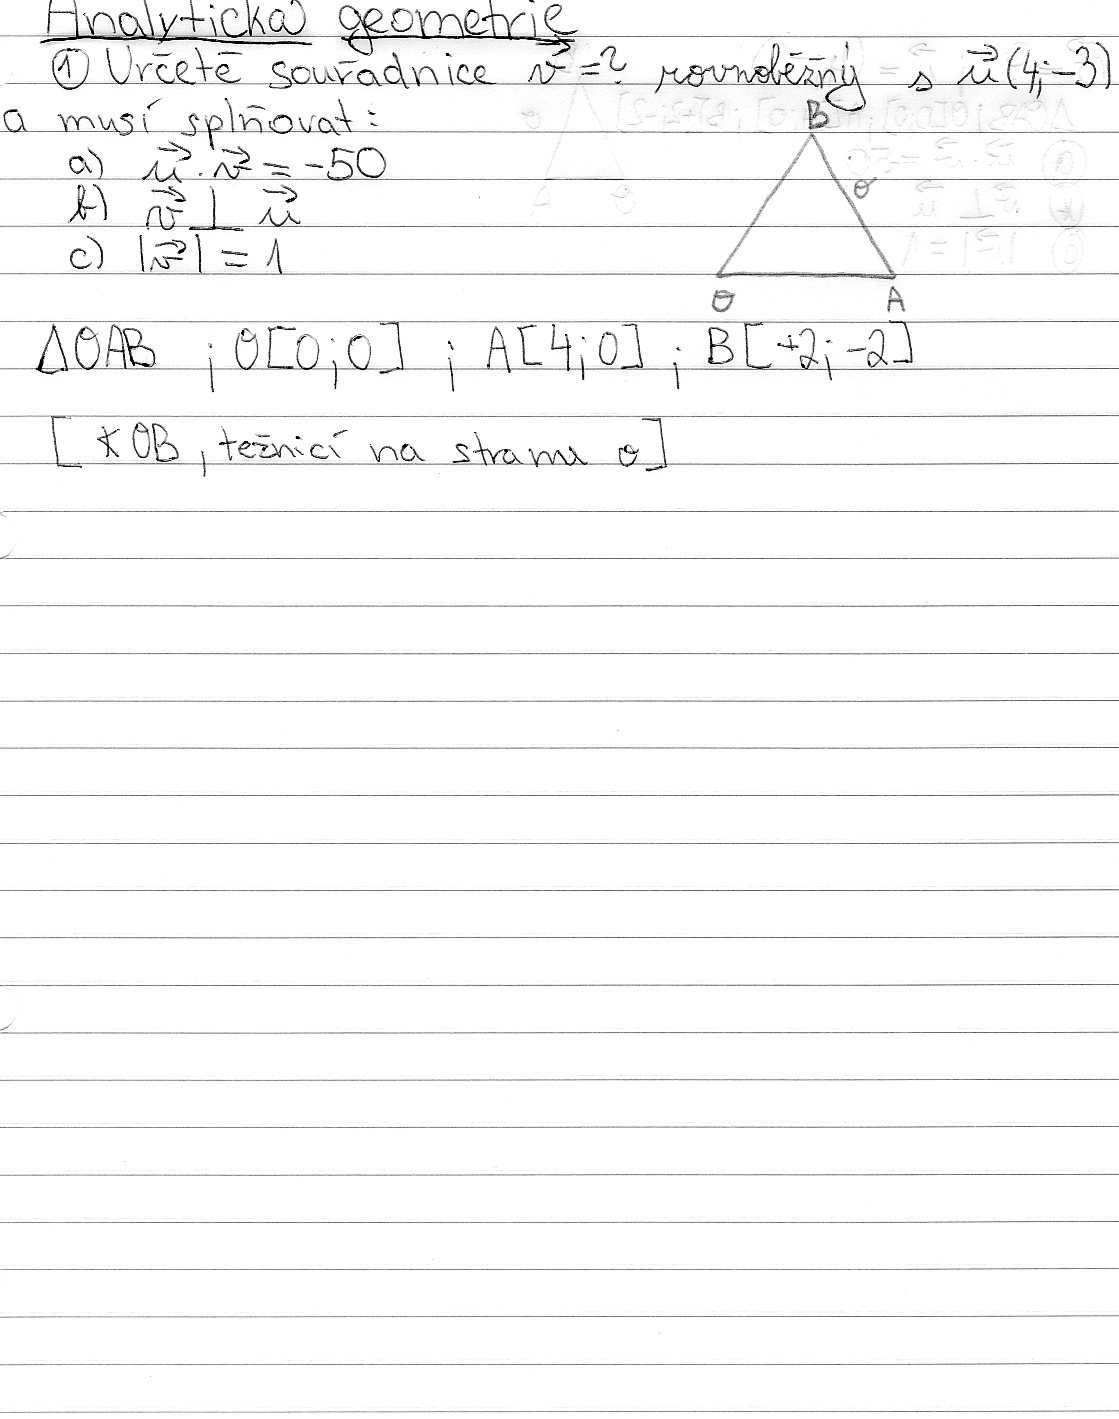 Analytická geometrie
① Určete souřadnice v⃗ = ? rovnoběžný s u⃗ (4;-3)
a musí splňovat:
a) u⃗ . v⃗ = -50
b) v⃗ ⊥ u⃗
c) |v⃗| = 1
B
o
O
A
ΔOAB ; O[0;0] ; A[4;0] ; B[+2;-2]
[∢OB, težnicí na stranu o]